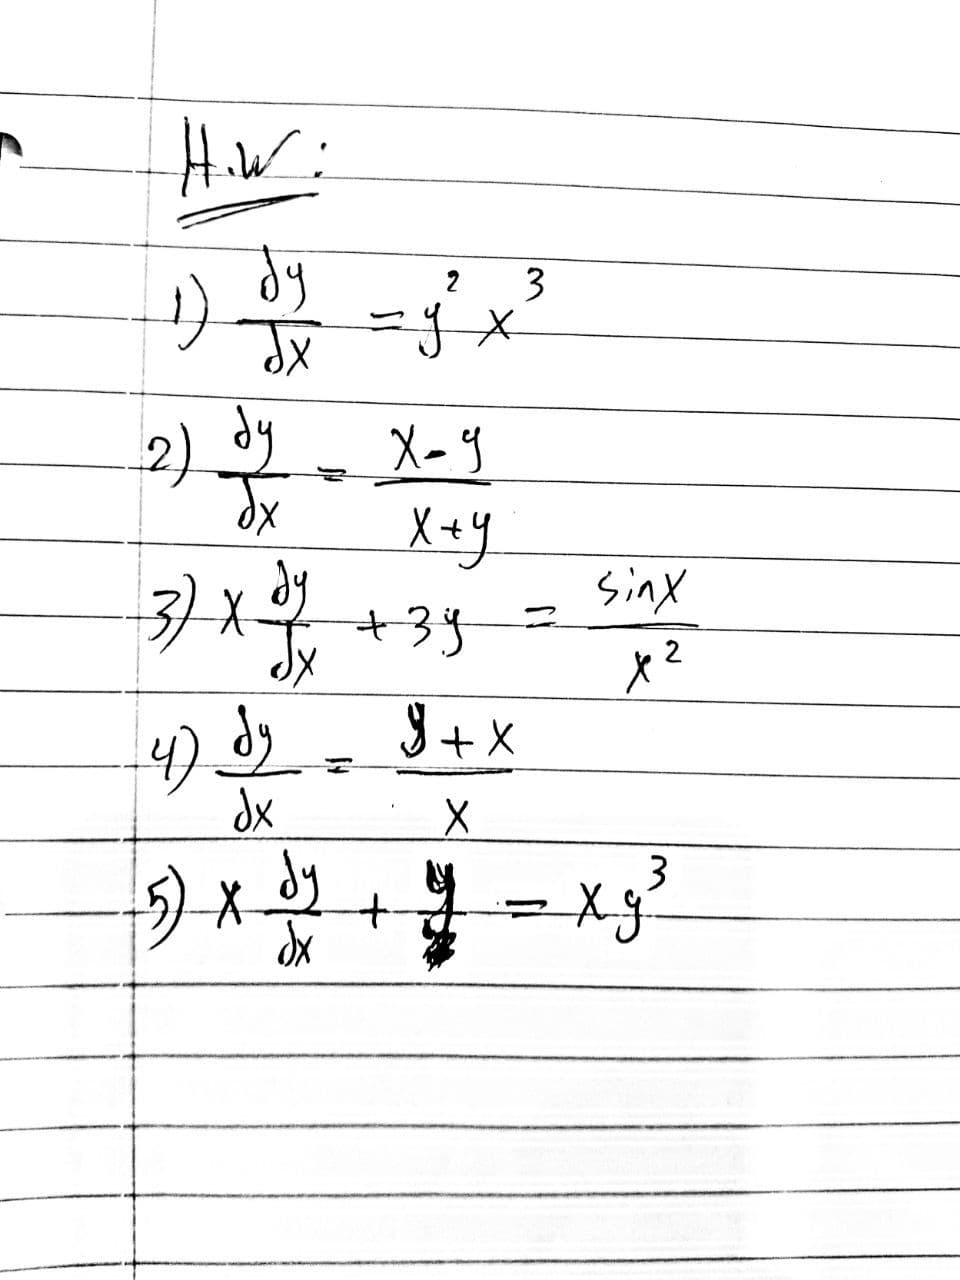 H.W:
1) dy/dx = y² x³
2) dy/dx = x-y/x+y
3) x dy/dx + 3y = sinx/x²
4) dy/dx = y+x/x
5) x dy/dx + y = xy³